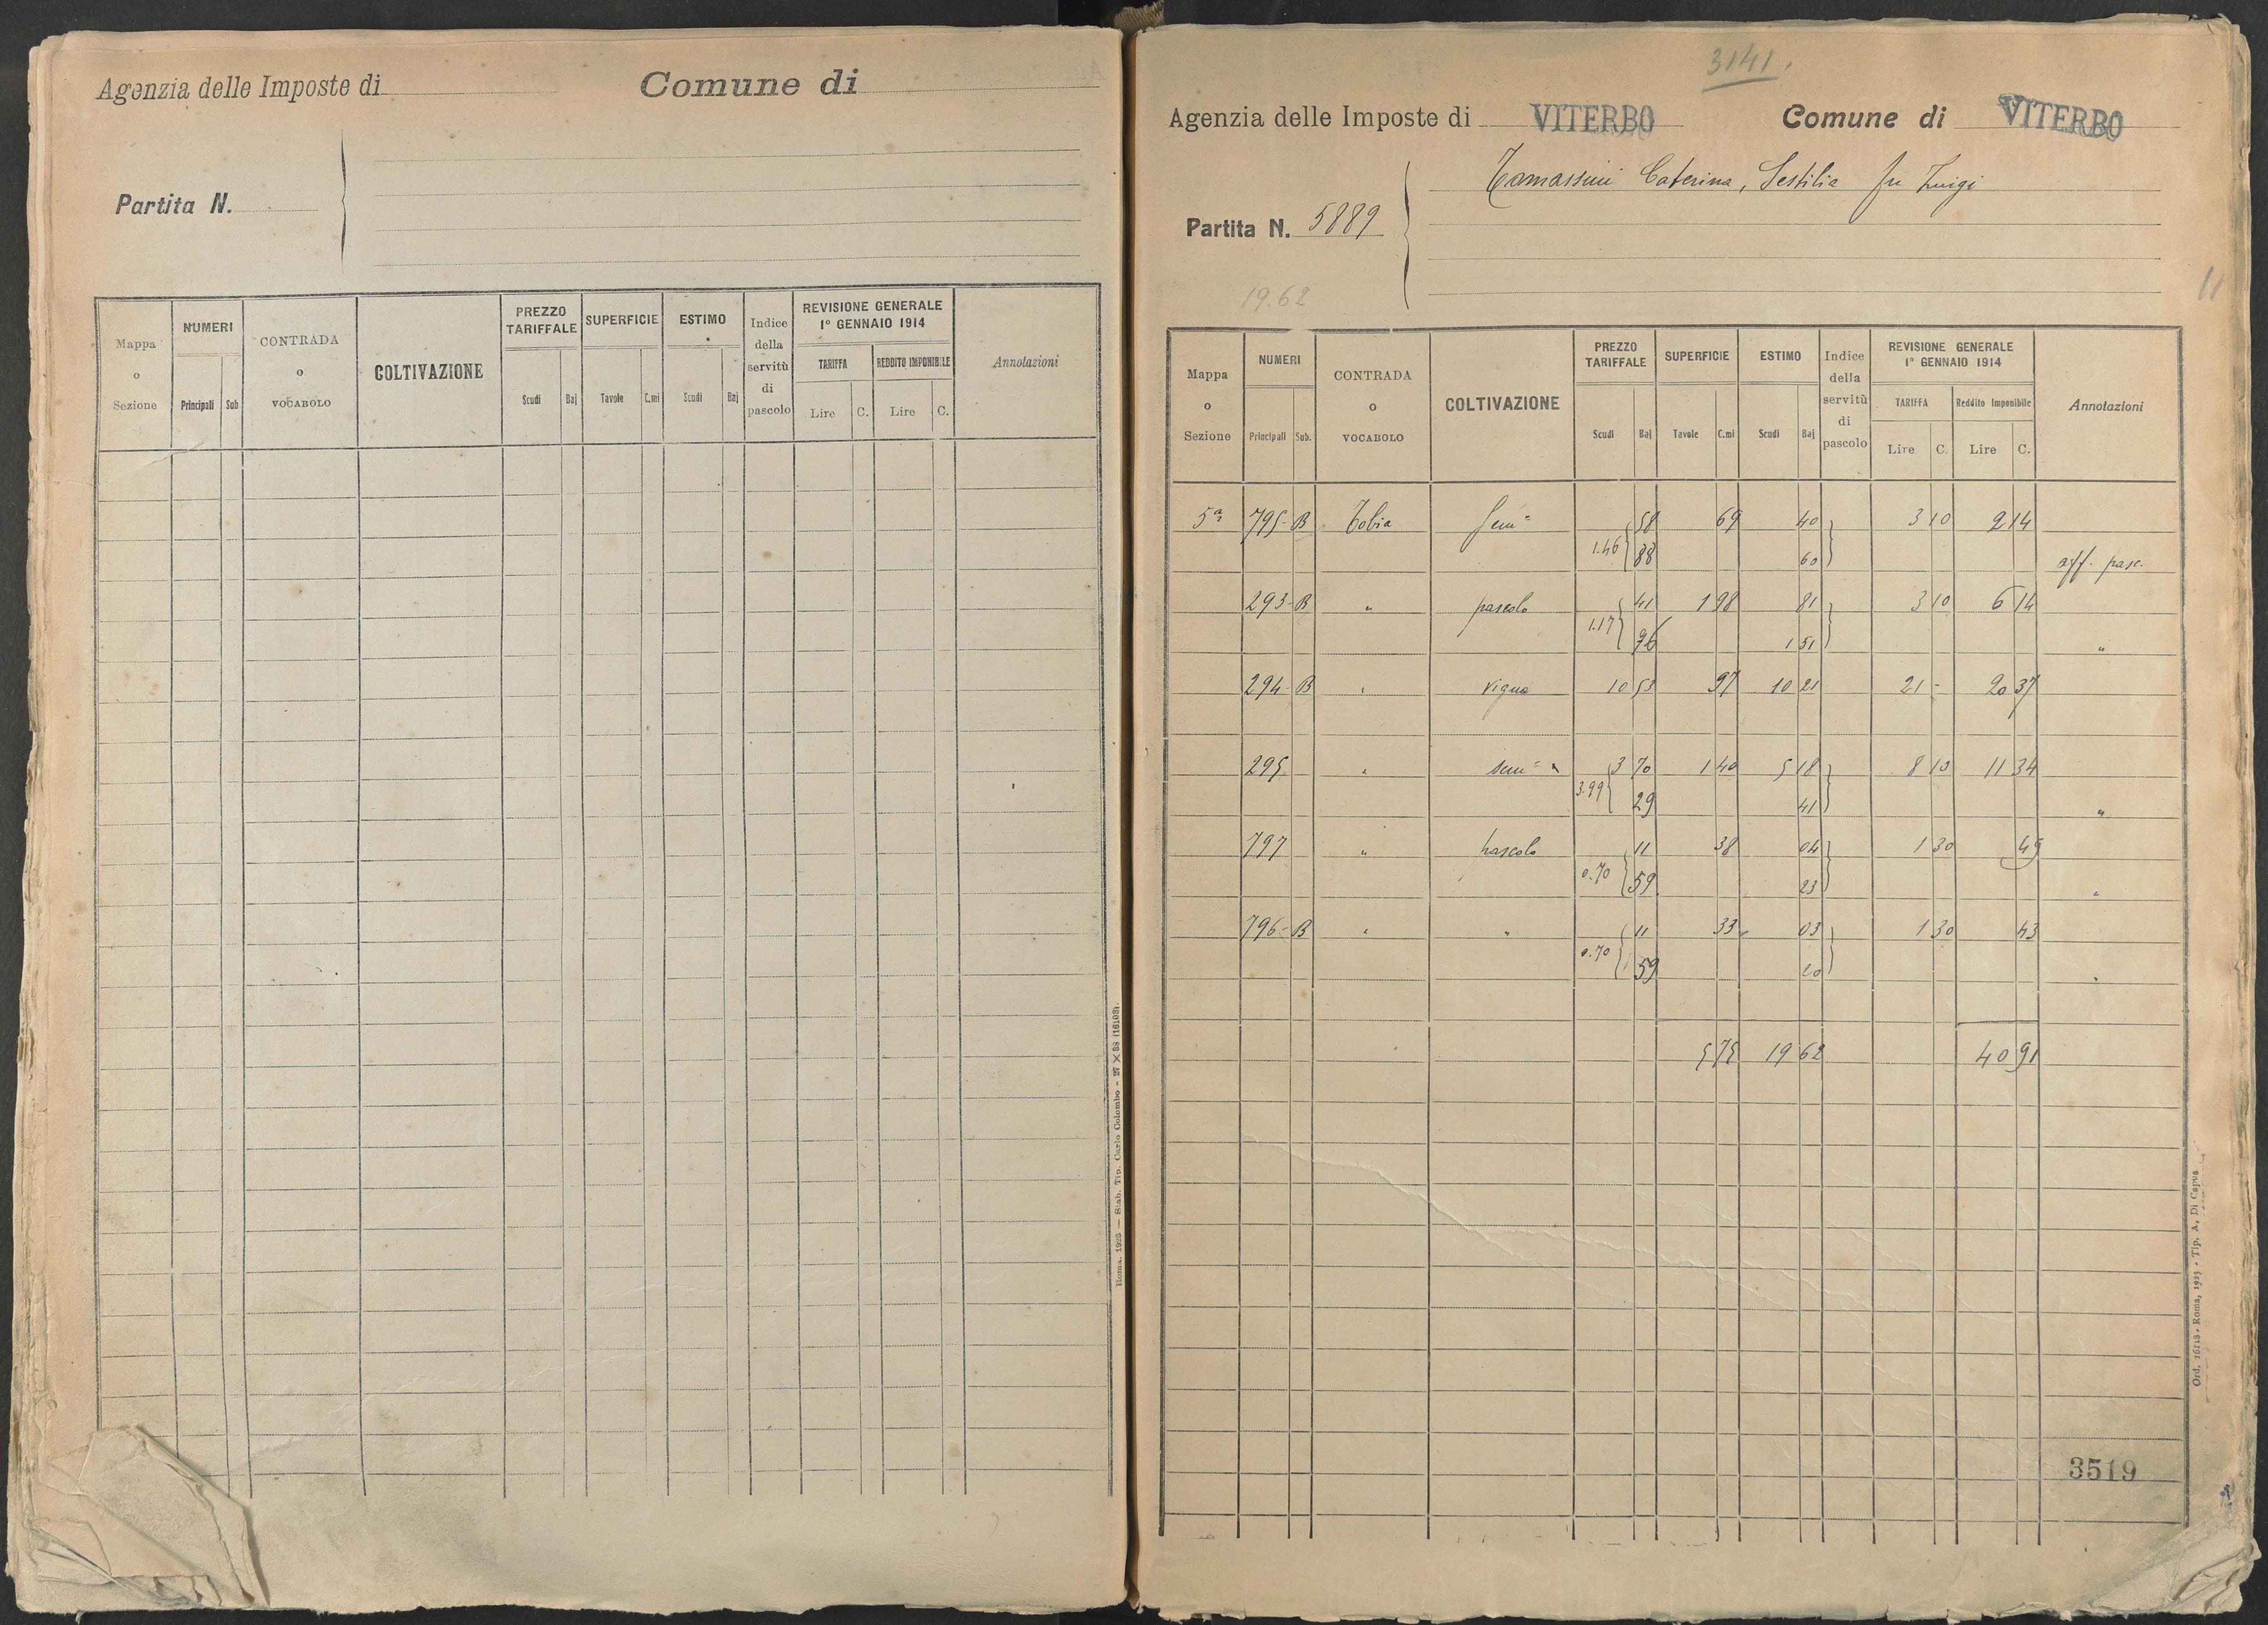 Agenzia delle Imposte di Comune di
Partita N.
Mappa o Sezione NUMERI Principali Sub CONTRADA o VOCABOLO COLTIVAZIONE PREZZO TARIFFALE Scudi Baj SUPERFICIE Tavole C.mi ESTIMO Scudi Baj Indice della servitù di pascolo REVISIONE GENERALE 1º GENNAIO 1914 TARIFFA Lire C. REDDITO IMPONIBILE Lire C. Annotazioni
Roma, 1925 — Stab. Tip. Carlo Colombo - 27 X 38 (16103).
3141.
Agenzia delle Imposte di VITERBO Comune di VITERBO
Tomassini Caterina, Sestilia fu Luigi
Partita N. 5889
11
19.62
Mappa o Sezione NUMERI Principali Sub. CONTRADA o VOCABOLO COLTIVAZIONE PREZZO TARIFFALE Scudi Baj SUPERFICIE Tavole C.mi ESTIMO Scudi Baj Indice della servitù di pascolo REVISIONE GENERALE 1º GENNAIO 1914 TARIFFA Lire C. Reddito Imponibile Lire C. Annotazioni
5ª 795- B Tobia Sem= 58 69 40 3 10 2 14
1.46 88 60 aff. pasc.
293- B " pascolo 41 1 98 81 3 10 6 14
1.17 76 1 51 "
294- B " vigna 10 53 97 10 21 21 - 20 37
295 " sem= 3 70 1 40 5 18 8 10 11 34
3.99 29 41 "
797 " pascolo 11 38 04 1 30 49
0.70 59 23 "
796- B " " 11 33 03 1 30 43
0.70 59 20 "
5 75 19 62 40 91
3519
Ord. 1613 - Roma, 1923 - Tip. A. Di Capua